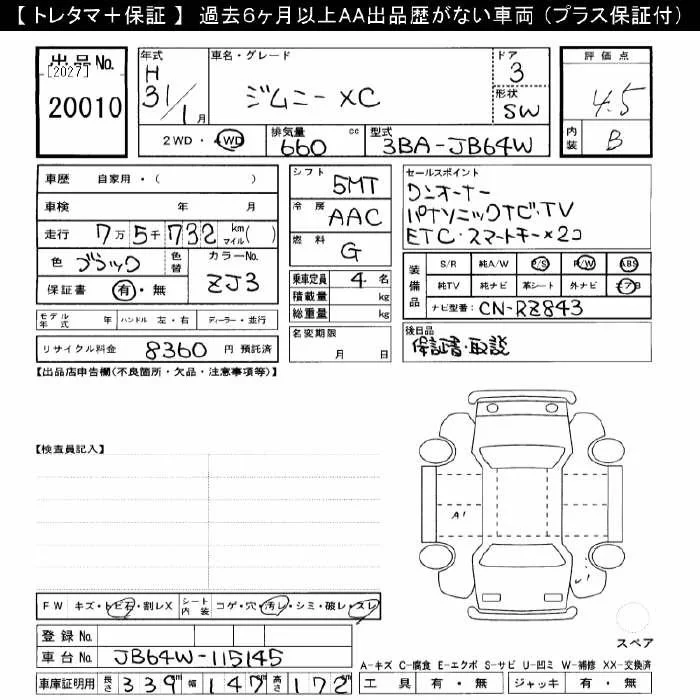 【 トレタマ＋保証 】 過去6ヶ月以上AA出品歴がない車両（プラス保証付）
出品No.
[2027]
20010
年式
H
31/1月
車名・グレード
ジムニー XC
ドア
3
形状
SW
評価点
4.5
内装
B
2WD・4WD
排気量
660 cc
型式
3BA-JB64W
車歴 自家用・( )
車検 年 月
走行 7万5千732 km マイル( )
色 ブラック
色替
カラーNo.
ZJ3
保証書 有・無
シフト
5MT
冷房
AAC
燃料
G
乗車定員 4 名
積載量 kg
総重量 kg
セールスポイント
ワンオーナー
パナソニックナビ・TV
ETC・スマートキー×2コ
装備品
S/R 純A/W P/S P/W ABS
純TV 純ナビ 革シート 外ナビ エアB
ナビ型番: CN-RZ843
モデル年式 年 ハンドル 左・右 ディーラー・並行
リサイクル料金 8360 円 預託済
名変期限
月 日
後日品
保証書・取説
【出品店申告欄(不良箇所・欠品・注意事項等)】
【検査員記入】
A1
FW キズ・トビ石・割レX
シート内装 コゲ・穴・汚レ・シミ・破レ・スレ
スペア
登録No.
車台No. JB64W-115145
車庫証明用 長さ 339 幅 147 高さ 172
A-キズ C-腐食 E-エクボ S-サビ U-凹ミ W-補修 XX-交換済
工具 有・無 ジャッキ 有・無